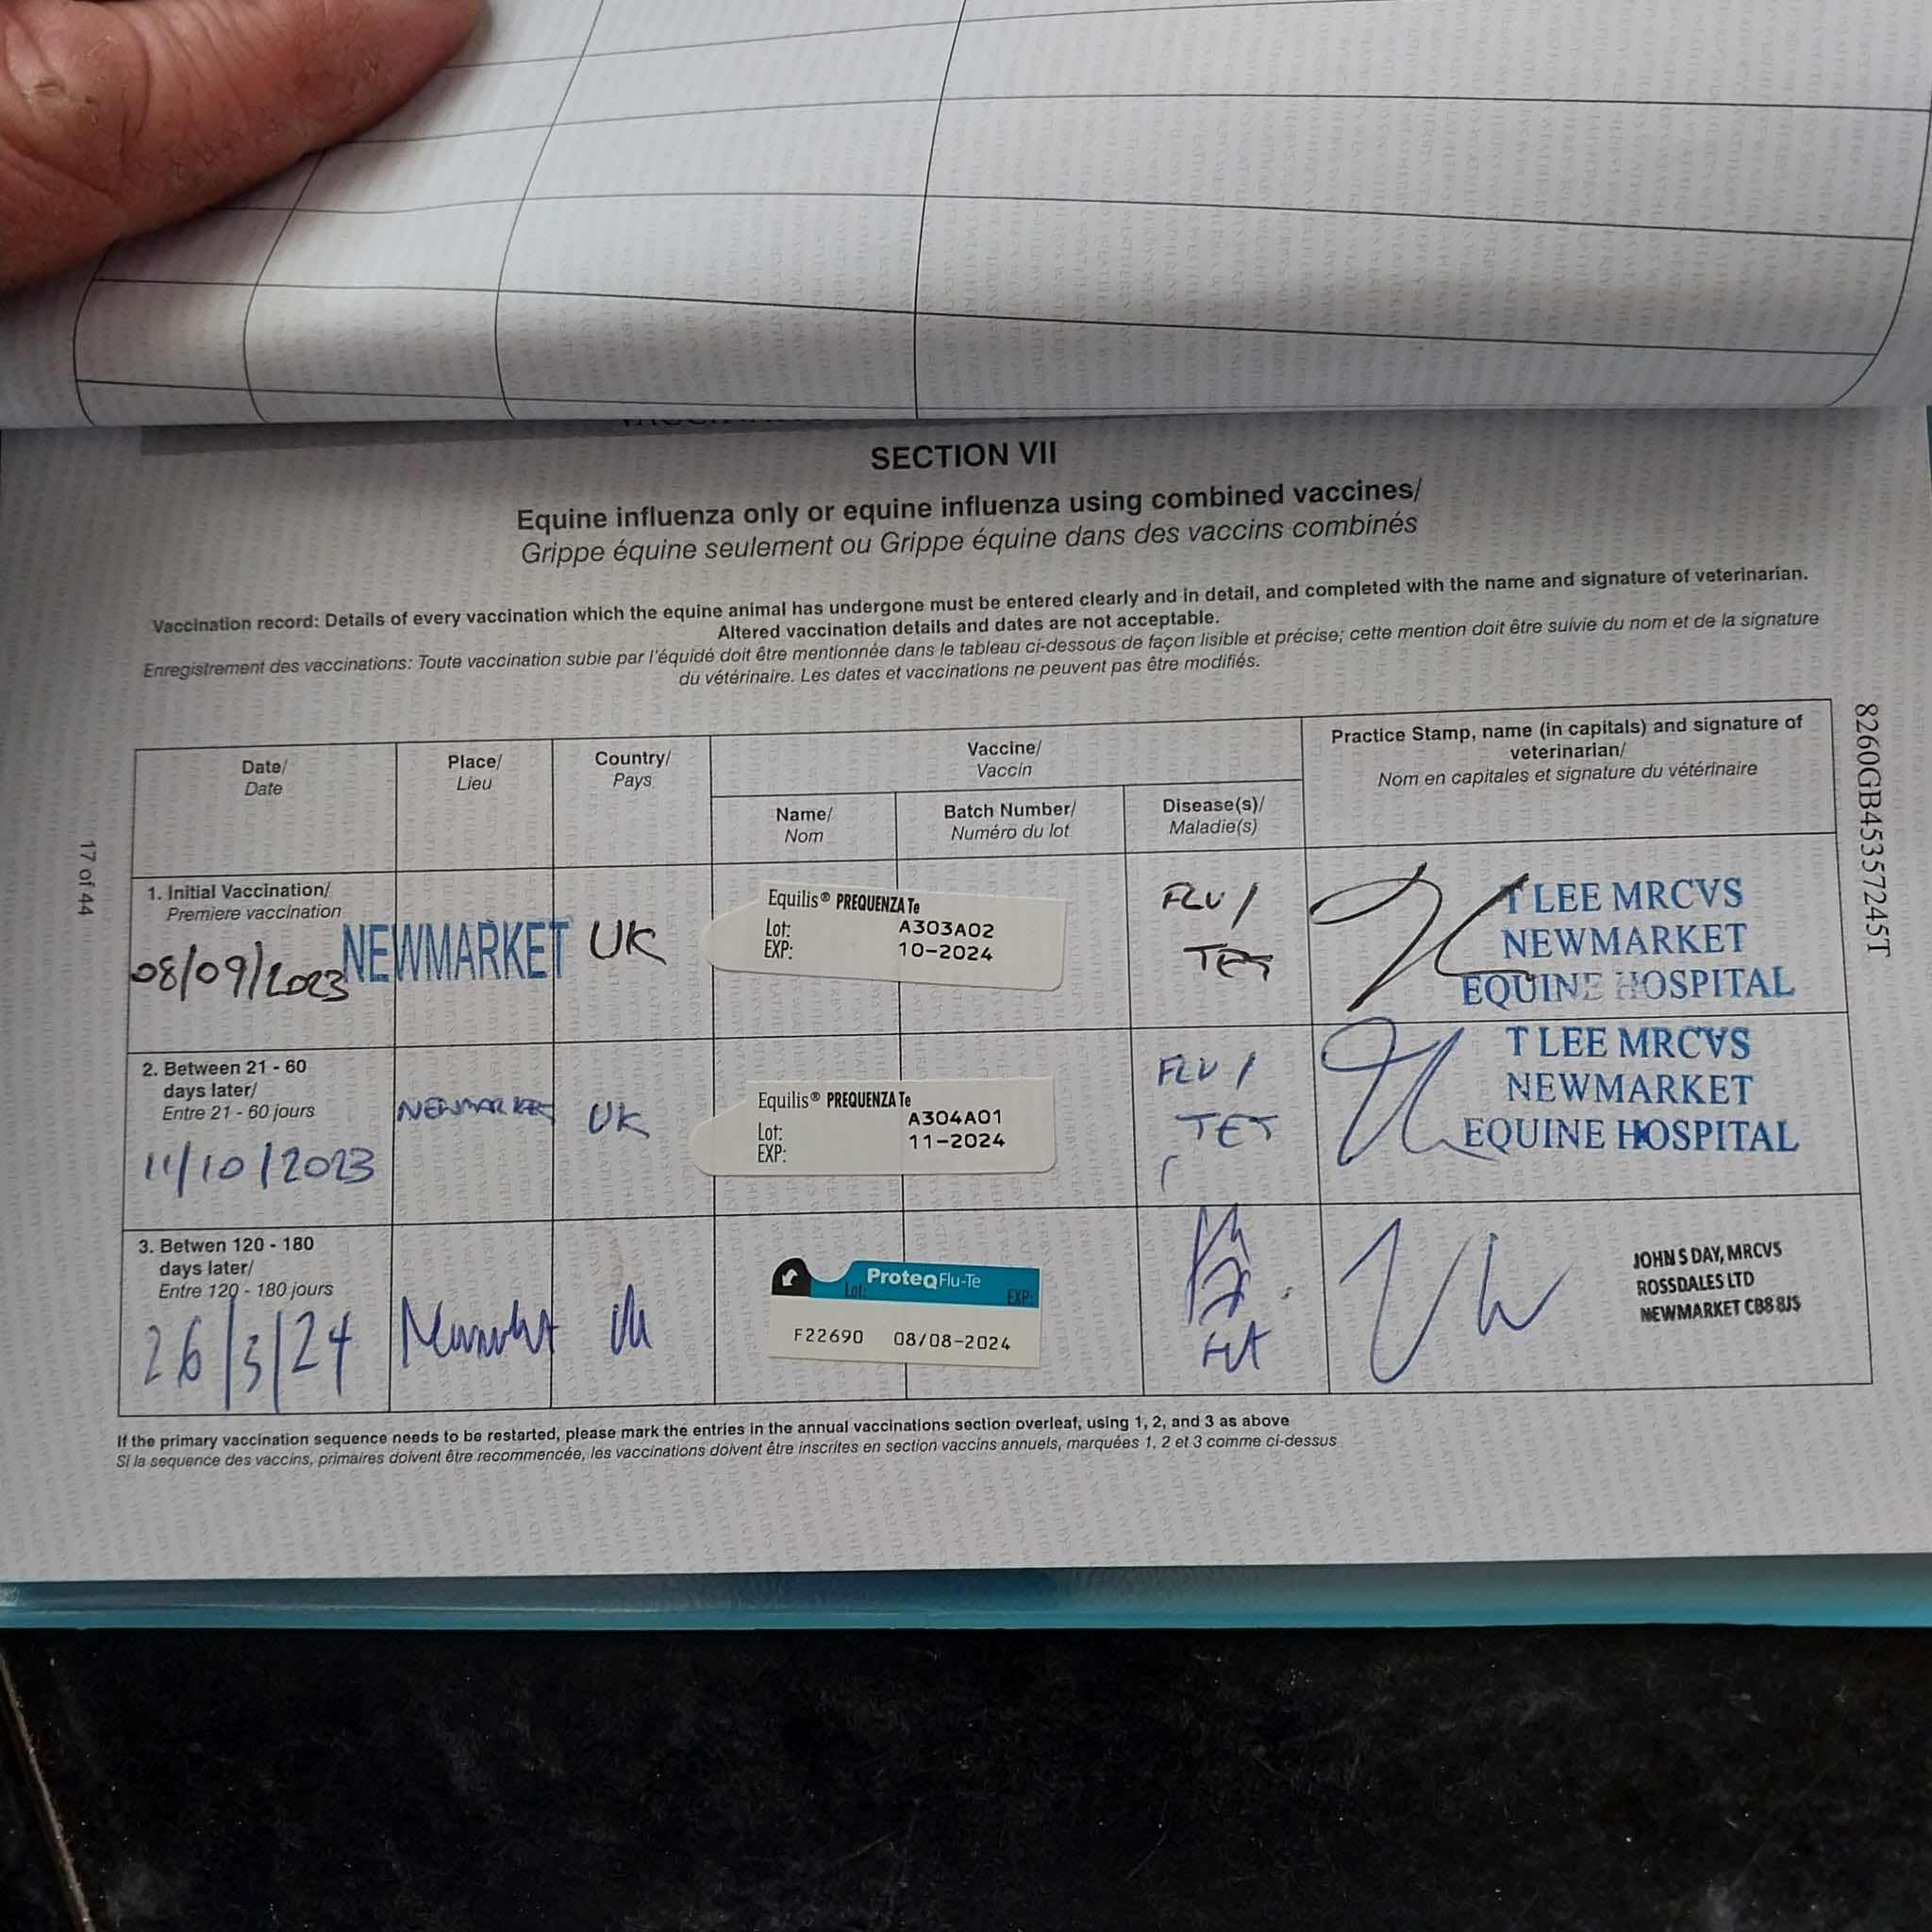 SECTION VII
Equine influenza only or equine influenza using combined vaccines/
Grippe équine seulement ou Grippe équine dans des vaccins combinés
Vaccination record: Details of every vaccination which the equine animal has undergone must be entered clearly and in detail, and completed with the name and signature of veterinarian.
Altered vaccination details and dates are not acceptable.
Enregistrement des vaccinations: Toute vaccination subie par l'équidé doit être mentionnée dans le tableau ci-dessous de façon lisible et précise; cette mention doit être suivie du nom et de la signature
du vétérinaire. Les dates et vaccinations ne peuvent pas être modifiés.
Date/
Date
Place/
Lieu
Country/
Pays
Vaccine/
Vaccin
Name/
Nom
Batch Number/
Numéro du lot
Disease(s)/
Maladie(s)
Practice Stamp, name (in capitals) and signature of
veterinarian/
Nom en capitales et signature du vétérinaire
1. Initial Vaccination/
Premiere vaccination
08/09/2023
NEWMARKET
UK
Equilis® PREQUENZA Te
Lot: A303A02
EXP: 10-2024
FLU /
TET
T LEE MRCVS
NEWMARKET
EQUINE HOSPITAL
2. Between 21 - 60
days later/
Entre 21 - 60 jours
11/10/2023
NEWMARKET
UK
Equilis® PREQUENZA Te
Lot: A304A01
EXP: 11-2024
FLU /
TET
T LEE MRCVS
NEWMARKET
EQUINE HOSPITAL
3. Betwen 120 - 180
days later/
Entre 120 - 180 jours
26/3/24
Newmarket
UK
ProteqFlu-Te
Lot: EXP:
F22690 08/08-2024
JOHN S DAY, MRCVS
ROSSDALES LTD
NEWMARKET CB8 8JS
If the primary vaccination sequence needs to be restarted, please mark the entries in the annual vaccinations section overleaf, using 1, 2, and 3 as above
Si la sequence des vaccins, primaires doivent être recommencée, les vaccinations doivent être inscrites en section vaccins annuels, marquées 1, 2 et 3 comme ci-dessus
17 of 44
8260GB45357245T